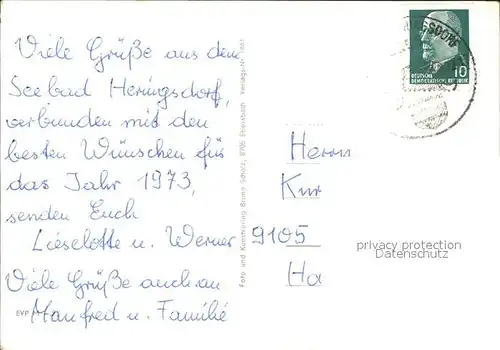 Viele Grüße aus dem
Seebad Heringsdorf,
verbunden mit den
besten Wünschen für
das Jahr 1973,
senden Euch
Lieselotte u. Werner
Viele Grüße auch an
Manfred u. Familie
EVP
Foto und Kunstverlag Bruno Scholz, 8705 Ebersbach
DEUTSCHE
DEMOKRATISCHE REPUBLIK
10
Herrn
Kur
9105
Ha
privacy protection
Datenschutz